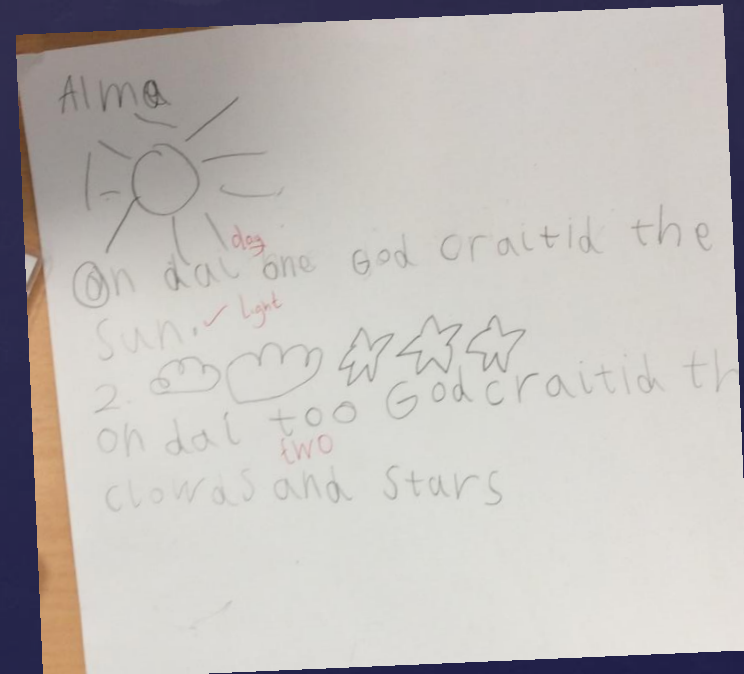 Alma
day
On dai one God craitid the
sun. ✓ light
2.
on dai too God craitid th
two
clowds and stars